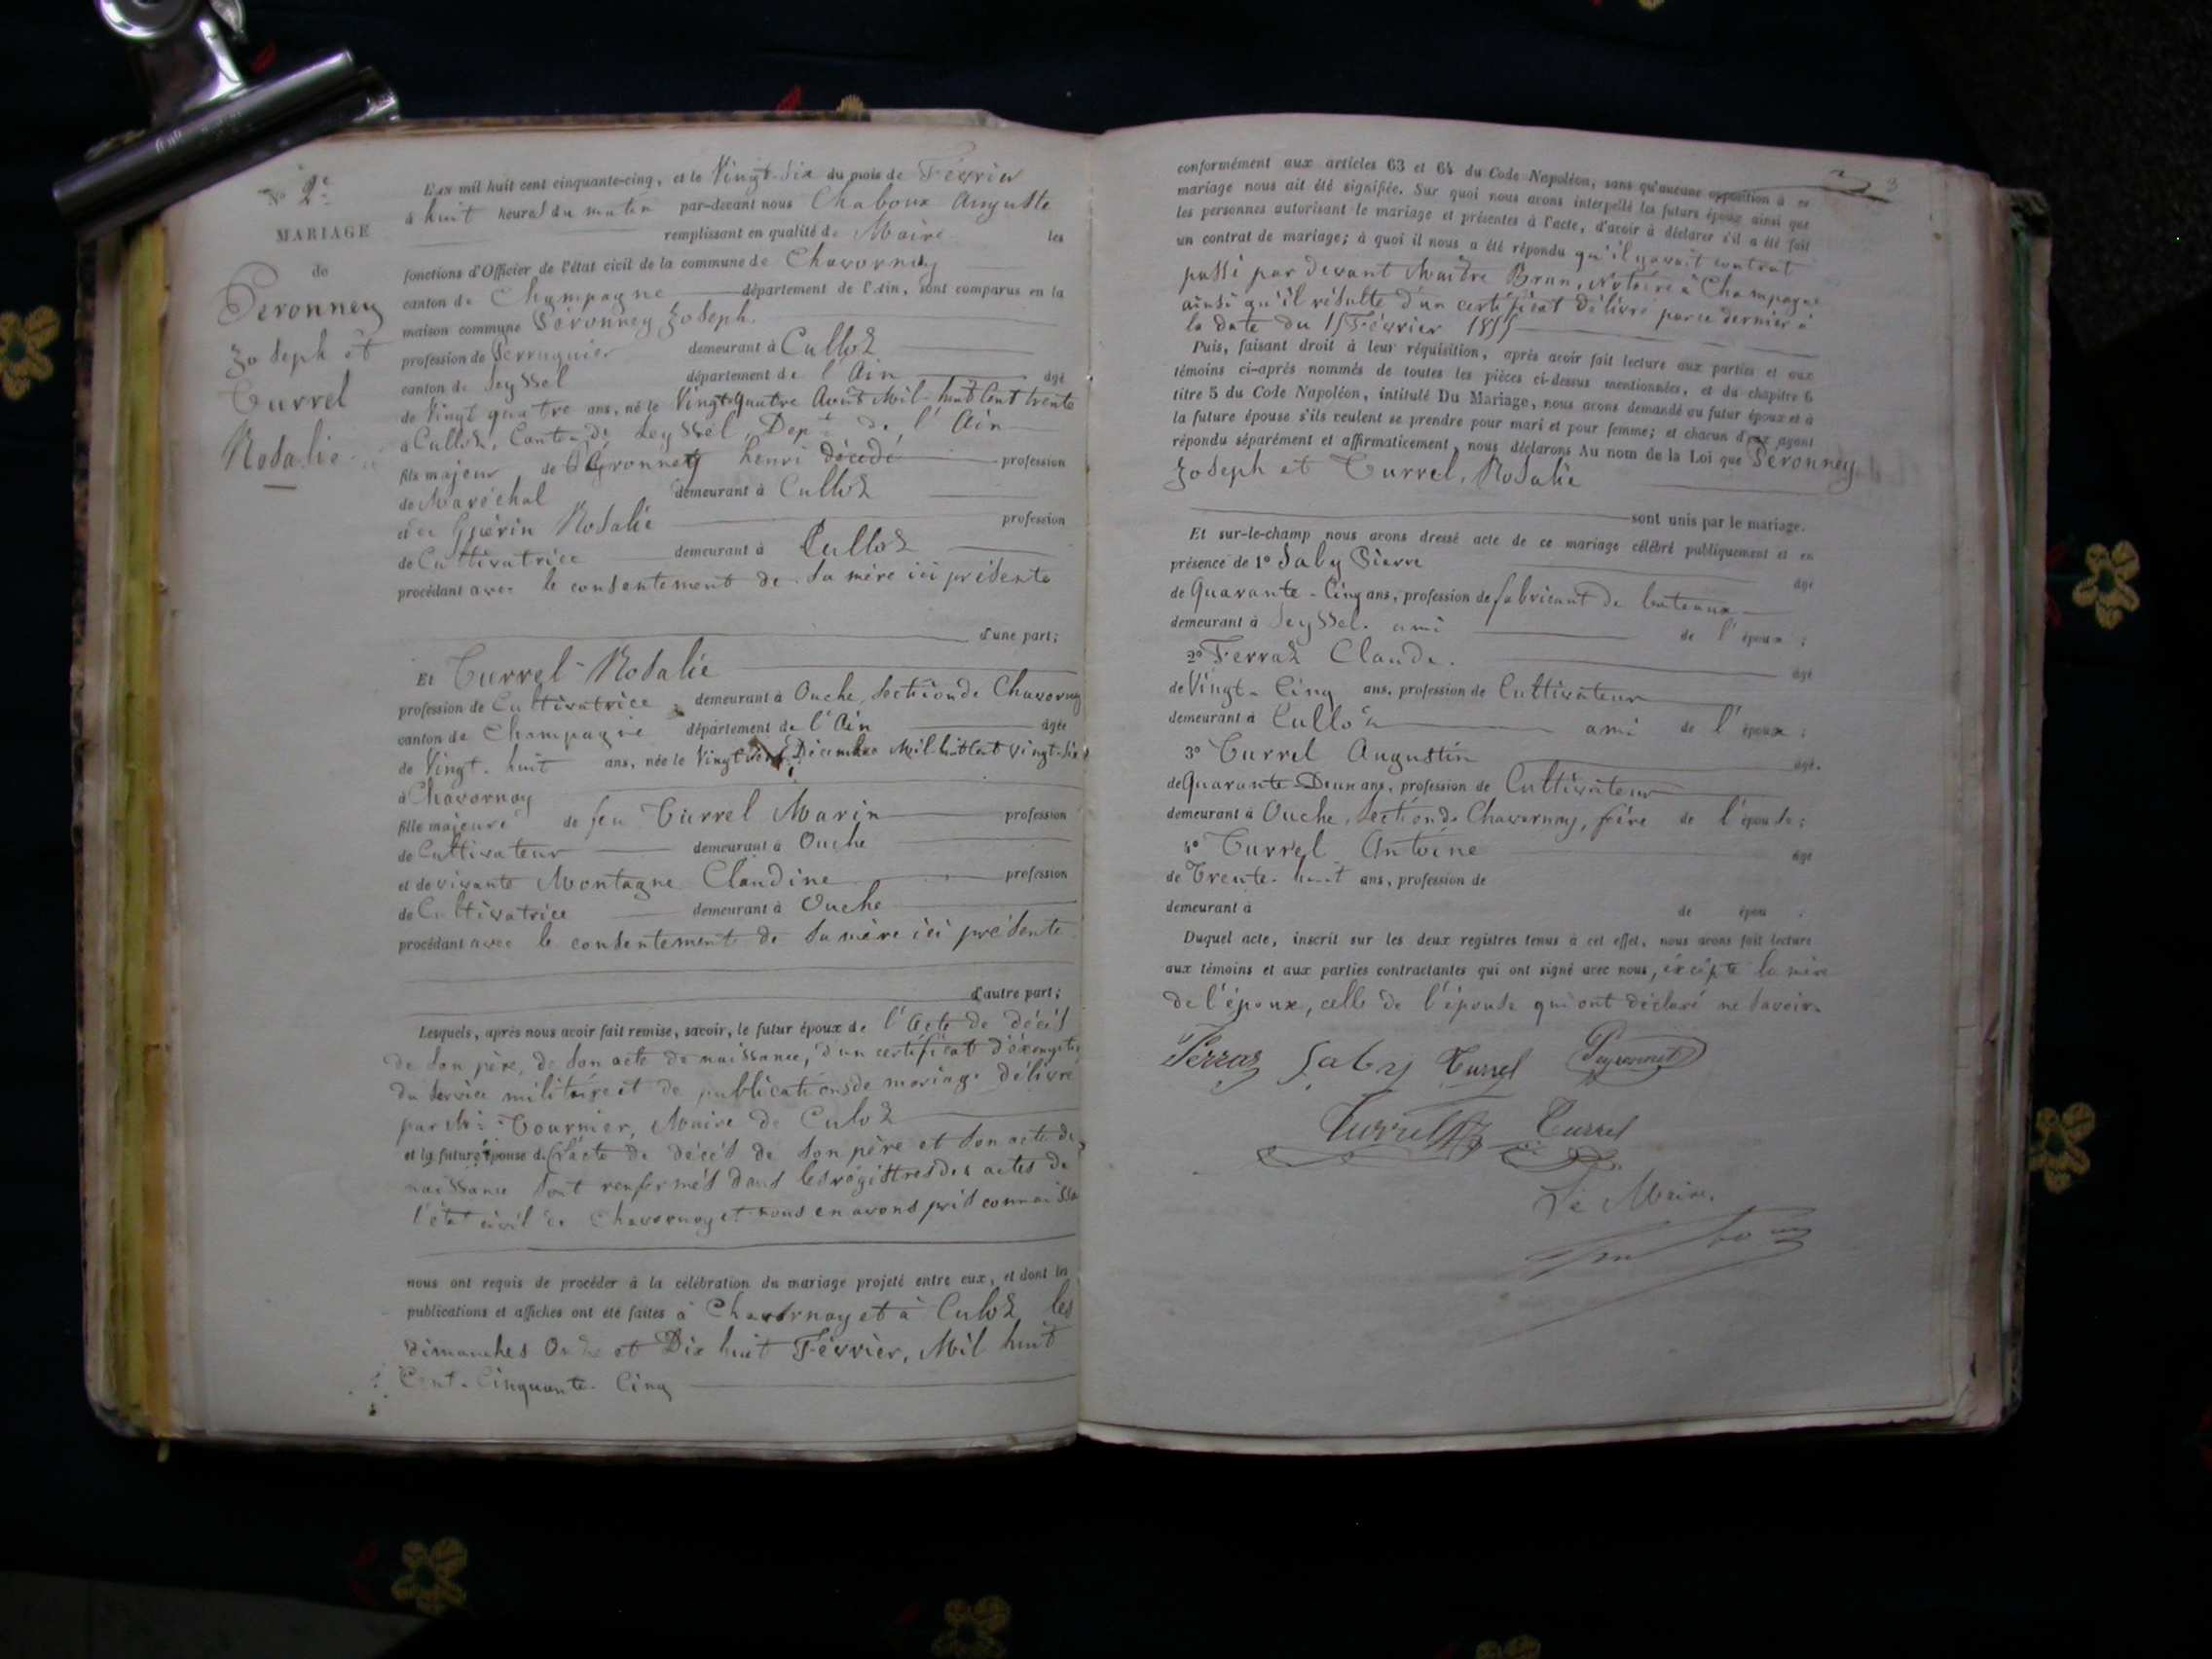 N° 2e
MARIAGE
de
Peronney
Joseph et
Turrel
Rosalie
L'AN mil huit cent cinquante-cinq, et le Vingt-Six du mois de Février
à huit heures du matin par-devant nous Chaboux Auguste
remplissant en qualité de Maire les
fonctions d'Officier de l'état civil de la commune de Chavornay
canton de Champagne département de l'Ain, sont comparus en la
maison commune Péronney Joseph
profession de Perruquier demeurant à Culloz
canton de Seyssel département de l'Ain âgé
de Vingt quatre ans, né le Vingt-quatre Août Mil-huit Cent trente
à Culloz, Canton de Seyssel, Dept de l'Ain
fils majeur de Péronney henri décédé profession
de Maréchal demeurant à Culloz
et de Guérin Rosalie profession
de Cultivatrice demeurant à Culloz
procédant avec le consentement de sa mère ici présente
d'une part;
Et Turrel Rosalie
profession de Cultivatrice demeurant à Ouche, Section de Chavornay
canton de Champagne département de l'Ain âgée
de Vingt-huit ans, née le Vingt Décembre Mil huit Cent vingt-Six
à Chavornay
fille majeure de feu Turrel Marin profession
de Cultivateur demeurant à Ouche
et de vivante Montagne Claudine profession
de Cultivatrice demeurant à Ouche
procédant avec le consentement de sa mère ici présente
d'autre part;
Lesquels, après nous avoir fait remise, savoir, le futur époux de l'acte de décès
de son père, de son acte de naissance, d'un certificat d'éxemption
du Service militaire et de publications de mariage délivré
par Mr Tournier, Maire de Culoz
et la future épouse de l'acte de décès de son père et son acte de
naissance sont renfermés dans les régistres des actes de
l'état civil de Chavornay et nous en avons pris connaissa
nous ont requis de procéder à la célébration du mariage projeté entre eux, et dont les
publications et affiches ont été faites à Chavornay et à Culoz les
dimanches Onze et Dix huit Février, Mil huit
Cent-Cinquante-Cinq
3
conformément aux articles 63 et 64 du Code Napoléon, sans qu'aucune opposition à ce
mariage nous ait été signifiée. Sur quoi nous avons interpellé les futurs époux ainsi que
les personnes autorisant le mariage et présentes à l'acte, d'avoir à déclarer s'il a été fait
un contrat de mariage; à quoi il nous a été répondu qu'il y avait contrat
passé par devant Maître Brun, Notaire à Champagne
ainsi qu'il résulte d'un certificat délivré par ce dernier à
la date du 15 Février 1855
Puis, faisant droit à leur réquisition, après avoir fait lecture aux parties et aux
témoins ci-après nommés de toutes les pièces ci-dessus mentionnées, et du chapitre 6
titre 5 du Code Napoléon, intitulé Du Mariage, nous avons demandé au futur époux et à
la future épouse s'ils veulent se prendre pour mari et pour femme; et chacun d'eux ayant
répondu séparément et affirmativement, nous déclarons Au nom de la Loi que Péronney
Joseph et Turrel, Rosalie
sont unis par le mariage.
Et sur-le-champ nous avons dressé acte de ce mariage célébré publiquement et en
présence de 1° Saby Pierre âgé
de Quarante-Cinq ans, profession de fabricant de bateaux
demeurant à Seyssel. ami de l'époux;
2° Ferraz Claude. âgé
de Vingt-Cinq ans, profession de Cultivateur
demeurant à Culloz ami de l'époux;
3° Turrel Augustin âgé
de Quarante-Deux ans, profession de Cultivateur
demeurant à Ouche, Section de Chavornay, frère de l'épouse;
4° Turrel Antoine âgé
de Trente-huit ans, profession de
demeurant à de épou ;
Duquel acte, inscrit sur les deux registres tenus à cet effet, nous avons fait lecture
aux témoins et aux parties contractantes qui ont signé avec nous, éxcepté la mère
de l'époux, celle de l'épouse qui ont déclaré ne savoir.
Ferraz Saby Turrel Peyronnet
Turrel Turrel
Le Maire,